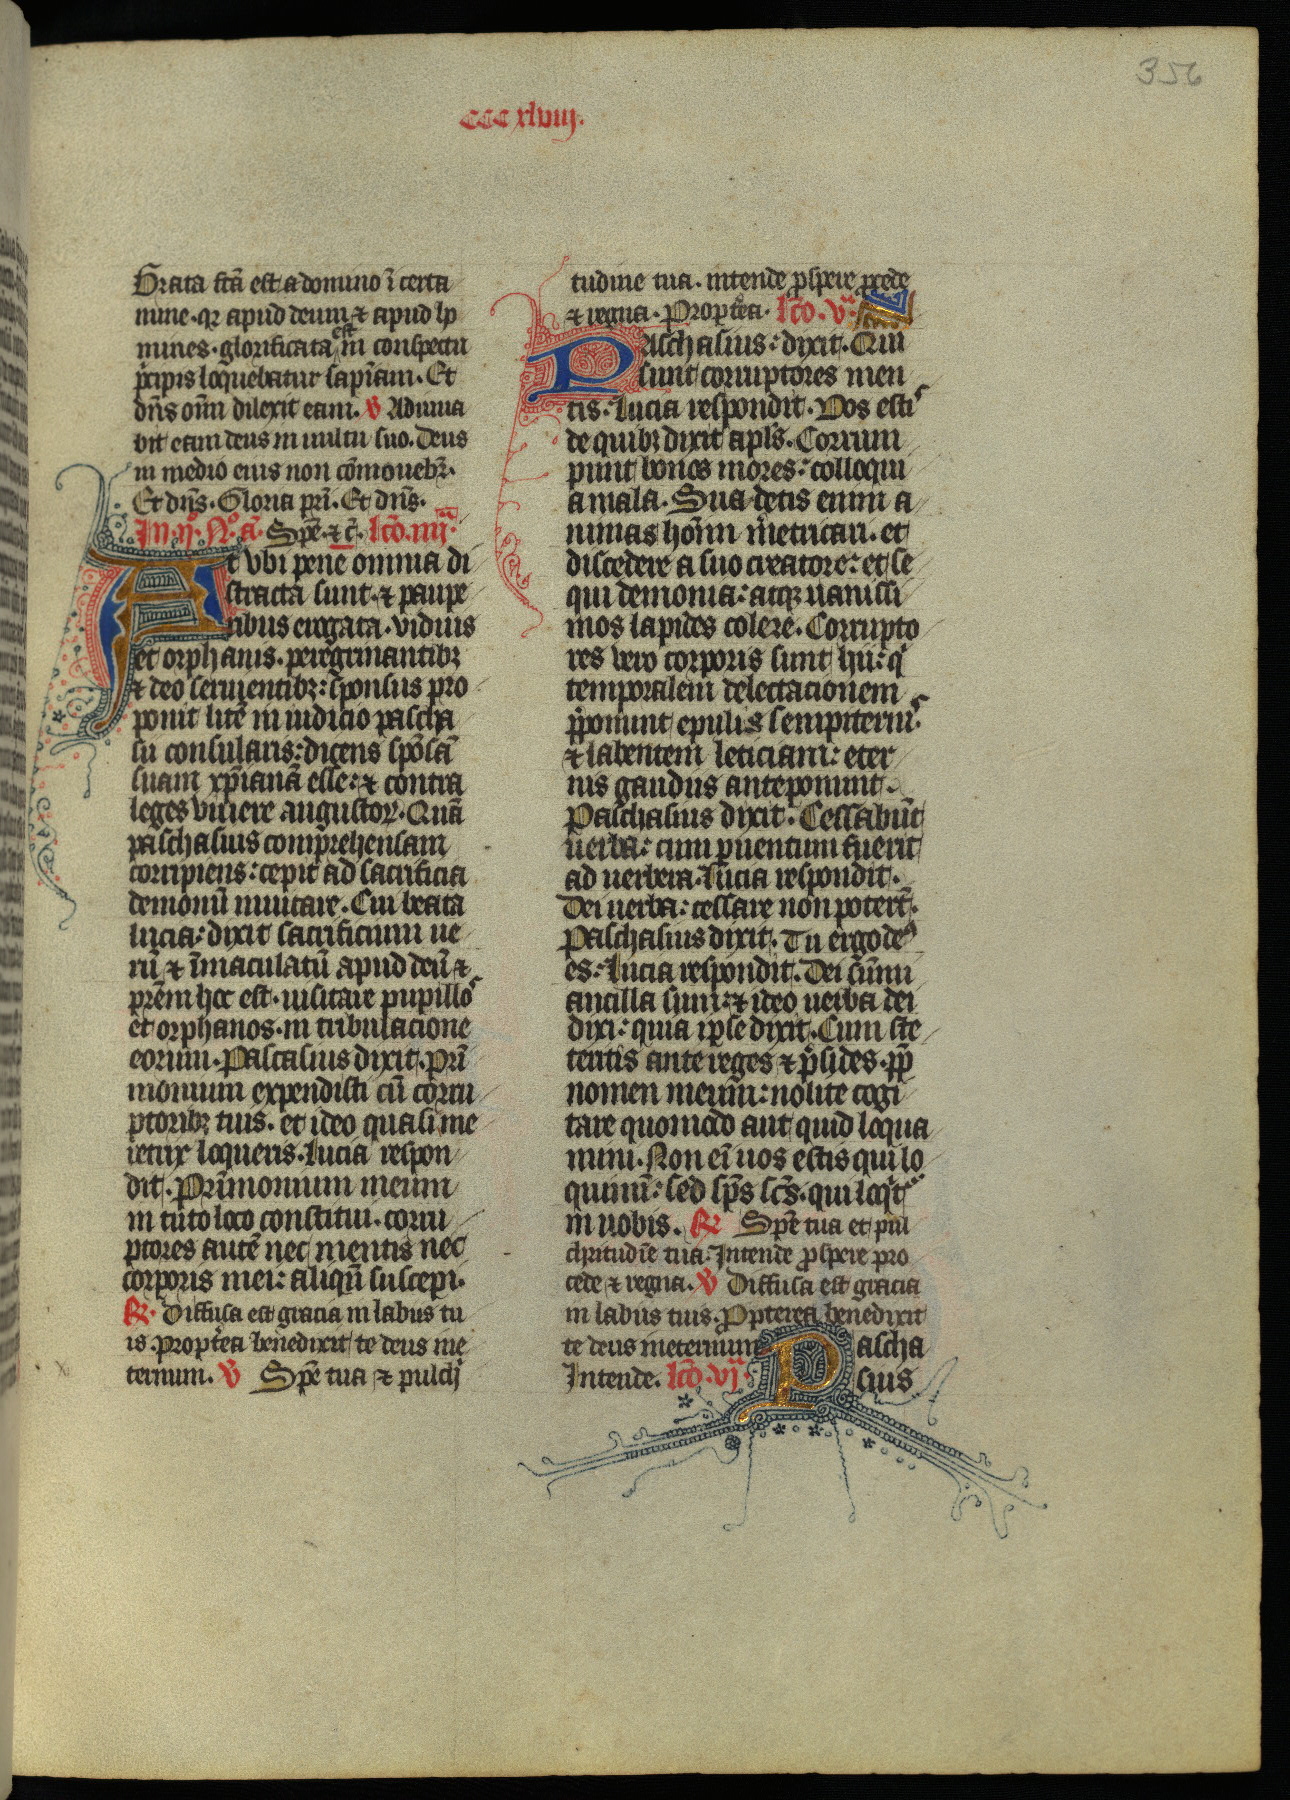 356
ccc xlviij.
Grata fc̄a est a domino ī certa
mine. qr apud deum ⁊ apud ho
mines. glorificata est in conspectu
p̄cipis loquebatur sapīam. Et
dn̄s om̄ dilexit eam. V Adiuua
bit eam deus in uultu suo. Deus
in medio eius non cōmouebꝛ̄.
Et dn̄s. Gloria pr̄i. Et dn̄s.
In ij. Nō. a͞. Spē. ⁊ c̄. lc̄o. iiij.
At vbi pene omnia di
stracta sunt. ⁊ paupe
ribus erogata. viduis
et orphanis. peregrinantibꝫ
⁊ deo seruientibꝫ: sponsus pro
ponit litē in iudicio pascha
sii consularis: dicens spōsā
suam xp̄ianā esse: ⁊ contra
leges viuere augustoꝝ. Quā
paschasius comprehensam
corripiens: cepit ad sacrificia
demonū inuitare. Cui beata
lucia: dixit sacrificium ue
rū ⁊ īmaculatū apud deū ⁊
pr̄em hoc est. uisitare pupillos
et orphanos. in tribulacione
eorum. Pascasius dixit. Pr̄i
monium expendisti cū corru
ptoribꝫ tuis. et ideo quasi me
retrix loqueris. Lucia respon
dit. Pr̄imonium meum
in tuto loco constitui. corru
ptores autē nec mentis nec
corporis mei: aliqn̄ suscepi.
R. Diffusa est gracia in labiis tu
is. Propt̄ea benedixit te deus in e
ternum. V Spē tua ⁊ pulch̄
tudine tua. intende p̄spere p̄cede
⁊ regna. Propt̄ea. lc̄o. v.
Paschasius: dixit. Qui
sunt corruptores men
tis. Lucia respondit. Vos estis
de quibꝫ dixit apl̄s. Corrum
punt bonos mores: colloqui
a mala. Suadetis enim a
nimas hoīm m̄etricari. et
discedere a suo creatore: et se
qui demonia: atqꝫ uanissi
mos lapides colere. Corrupto
res vero corporis sunt hii: q̄
temporalem delectacionem
p̄ponunt epulis sempiternis
⁊ labentem leticiam: eter
nis gaudiis anteponunt.
Paschasius dixit. Cessabūt
uerba: cum puentum fuerit
ad uerbera. Lucia respondit.
Dei uerba: cessare non poterūt.
Paschasius dixit. Tu ergo de⁹
es: Lucia respondit. Dei sūmi
ancilla sum: ⁊ ideo uerba dei
dixi: quia ip̄e dixit. Cum ste
teritis ante reges ⁊ p̄sides. pp̄
nomen meum: nolite cogi
tare quomodo aut quid loqua
mini. Non eī uos estis qui lo
quimī: sed sp̄s sc̄s. qui loqt̄
in uobis. R Spē tua et pul
chritudīe tua. Intende p̄spere pro
cede ⁊ regna. V Diffusa est gracia
in labiis tuis. Pp̄terea benedixit
te deus in eternum Pascha
Intende. lc̄o. vj. sius